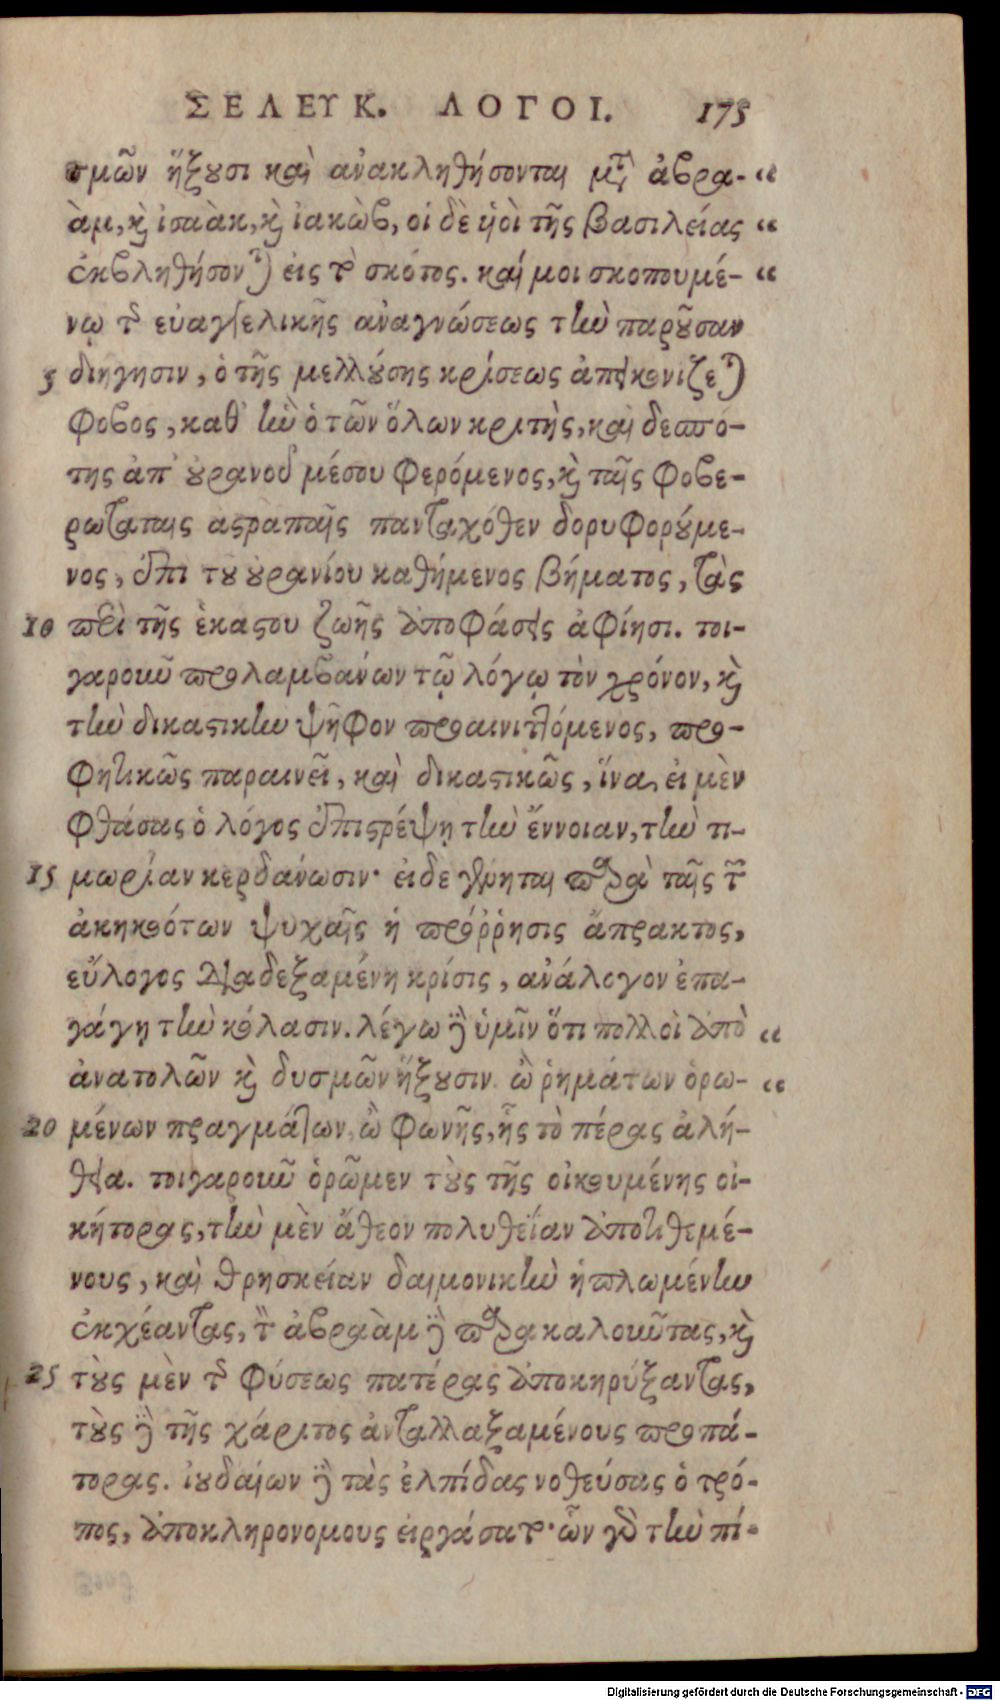 ΣΕΛΕΥΚ. ΛΟΓΟΙ. 175
σμῶν ἥξουσι καὶ ἀνακληθήσονται μετὰ ἀβρα- “
ὰμ, καὶ ἰσαὰκ, καὶ ἰακὼβ, οἱ δὲ ὑιοὶ τῆς βασιλείας “
ἐκβληθήσονται εἰς τὸ σκότος. καί μοι σκοπουμέ- “
νῳ τῆς εὐαγγελικῆς ἀναγνώσεως τὴν παροῦσαν
5 διήγησιν, ὁ τῆς μελλούσης κρίσεως ἀπεικονίζεται
φόβος, καθ’ ἣν ὁ τῶν ὅλων κριτὴς, καὶ δεσπό-
της ἀπ’ οὐρανοῦ μέσου φερόμενος, καὶ ταῖς φοβε-
ρωτάταις ἀστραπαῖς πανταχόθεν δορυφορούμε-
νος, ἐπὶ τοῦ οὐρανίου καθήμενος βήματος, τὰς
10 περὶ τῆς ἑκάστου ζωῆς ἀποφάσεις ἀφίησι. τοι-
γαροῦν προλαμβάνων τῷ λόγῳ τὸν χρόνον, καὶ
τὴν δικαστικὴν ψῆφον προαινιττόμενος, προ-
φητικῶς παραινεῖ, καὶ δικαστικῶς, ἵνα, εἰ μὲν
φθάσας ὁ λόγος ἐπιστρέψῃ τὴν ἔννοιαν, τὴν τι-
15 μωρίαν κερδάνωσιν· εἰ δε γένηται παρὰ ταῖς τῶν
ἀκηκοότων ψυχαῖς ἡ πρόῤῥησις ἄπρακτος,
εὔλογος διαδεξαμένη κρίσις, ἀνάλογον ἐπα-
γάγῃ τὴν κόλασιν. λέγω δὲ ὑμῖν ὅτι πολλοὶ ἀπὸ “
ἀνατολῶν καὶ δυσμῶν ἥξουσιν. ὢ ῥημάτων ὁρω- “
20 μένων πραγμάτων, ὢ φωνῆς, ἧς τὸ πέρας ἀλή-
θεια. τοιγαροῦν ὁρῶμεν τοὺς τῆς οἰκουμένης οἰ-
κήτορας, τὴν μὲν ἄθεον πολυθεΐαν ἀποτιθεμέ-
νους, καὶ θρησκείαν δαιμονικὴν ἡπλωμένην
ἐκχέαντας, τὸν ἀβραὰμ δὲ παρακαλοῦντας, καὶ
25 τοὺς μὲν τῆς φύσεως πατέρας ἀποκηρύξαντας,
τοὺς δὲ τῆς χάριτος ἀνταλλαξαμένους προπά-
τορας. ἰουδαίων δὲ τὰς ἐλπίδας νοθεύσας ὁ τρό-
πος, ἀποκληρονομους εἰργάσατο· ὧν γὰρ τὴν πί-
Digitalisierung gefördert durch die Deutsche Forschungsgemeinschaft - DFG